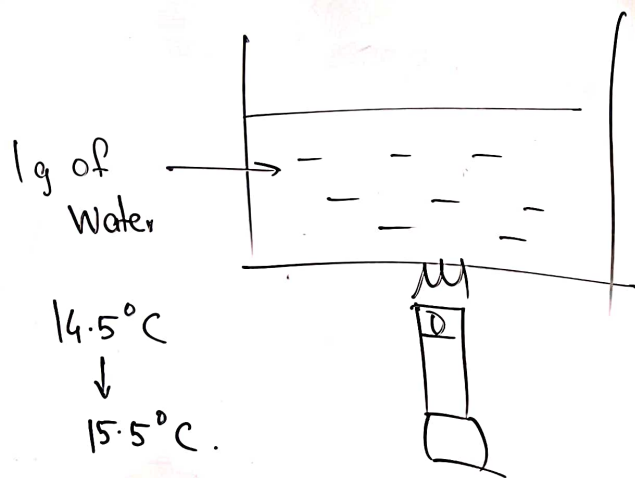 1g of
Water
14.5°C
↓
15.5°C.